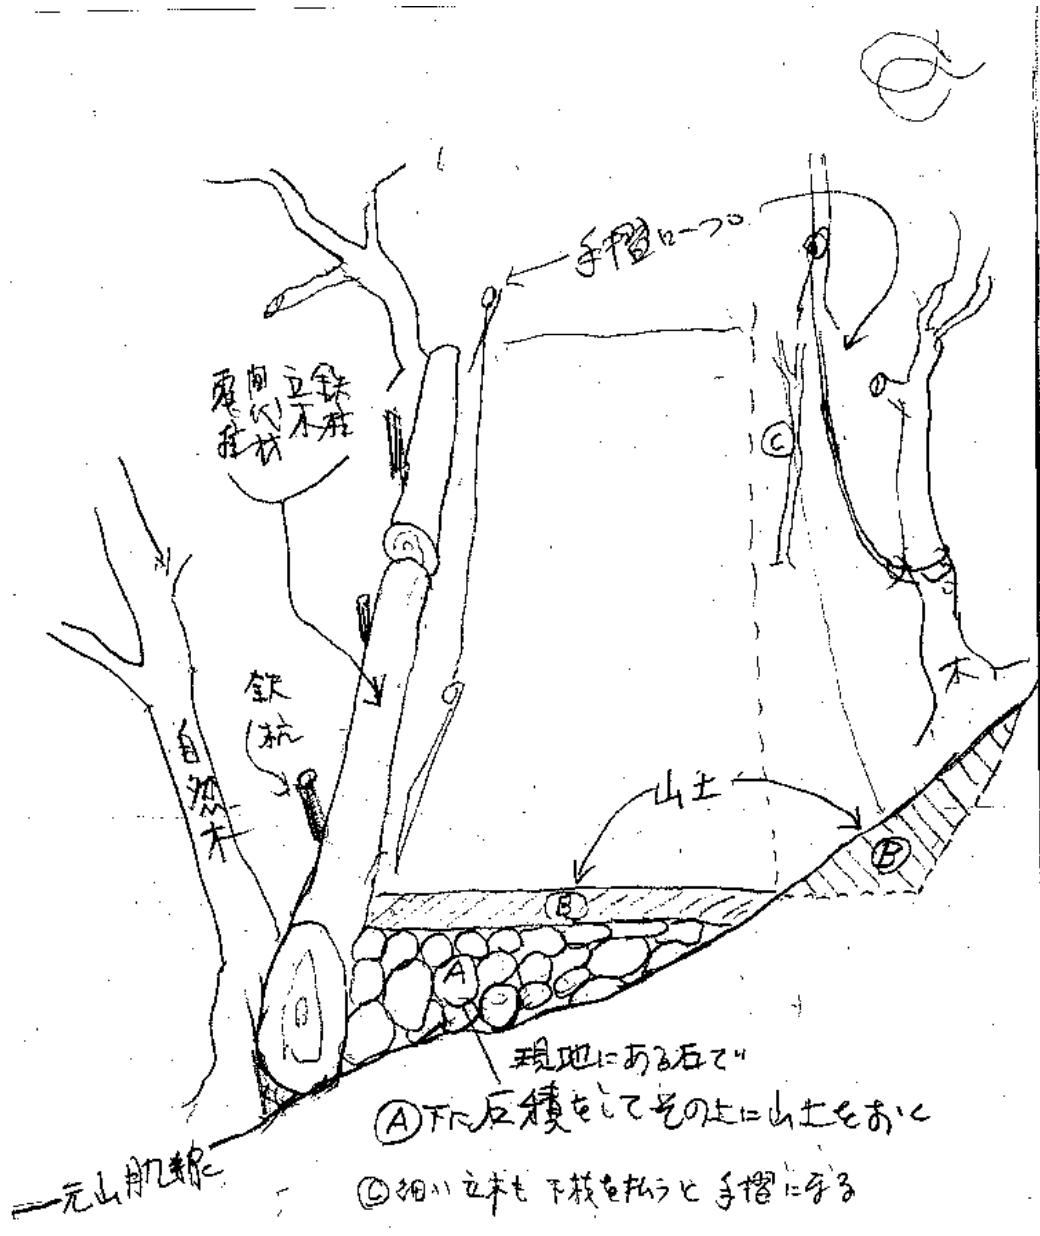 手摺ロープ
鉄柱
立木
間伐材
電柱
鉄杭
自然木
C
木
山土
B
B
A
現地にある石で
Ⓐ下に石積をしてその上に山土をおく
元山肌線
Ⓒ細い立木も下枝を払うと手摺になる